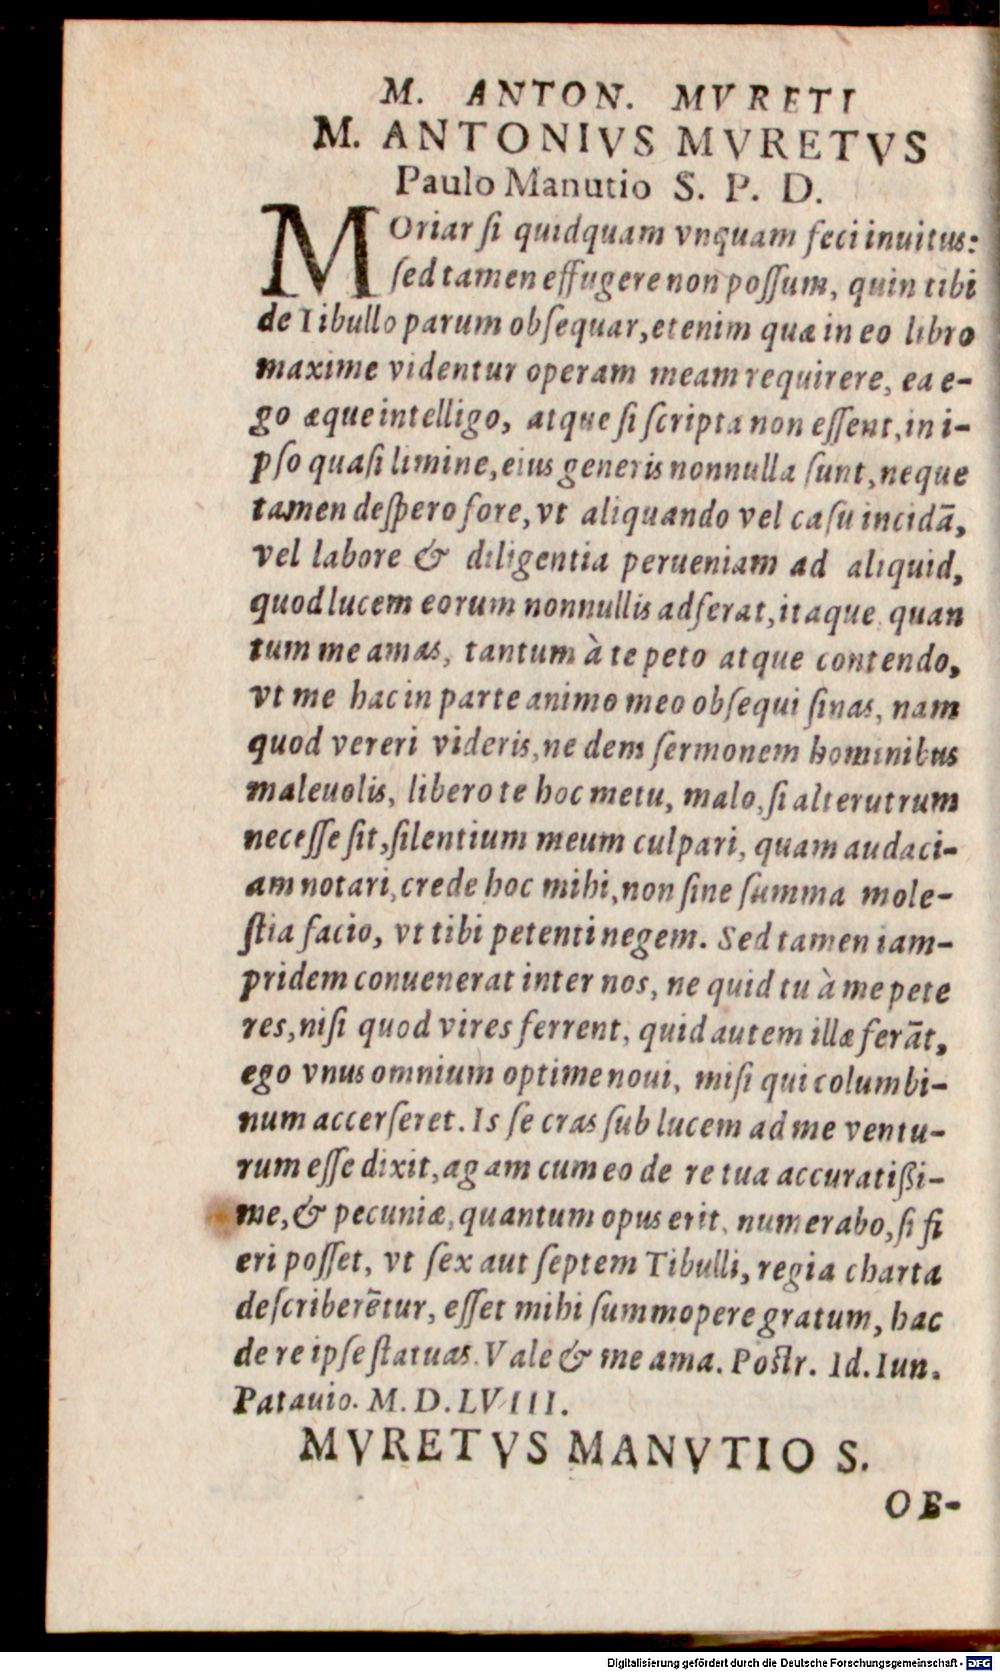 M. ANTON. MVRETI
M. ANTONIVS MVRETVS
Paulo Manutio S. P. D.
MOriar ſi quidquam vnquam feci inuitus:
ſed tamen effugere non poſſum, quin tibi
de Tibullo parum obſequar, etenim quæ in eo libro
maxime videntur operam meam requirere, ea e-
go æque intelligo, atque ſi ſcripta non eſſent, in i-
pſo quaſi limine, eius generis nonnulla ſunt, neque
tamen deſpero fore, vt aliquando vel caſu incidā,
vel labore & diligentia perueniam ad aliquid,
quod lucem eorum nonnullis adferat, itaque quan
tum me amas, tantum à te peto atque contendo,
vt me hac in parte animo meo obſequi ſinas, nam
quod vereri videris, ne dem ſermonem hominibus
maleuolis, libero te hoc metu, malo, ſi alterutrum
neceſſe ſit, ſilentium meum culpari, quam audaci-
am notari, crede hoc mihi, non ſine ſumma mole-
ſtia facio, vt tibi petenti negem. Sed tamen iam-
pridem conuenerat inter nos, ne quid tu à me pete
res, niſi quod vires ferrent, quid autem illæ ferāt,
ego vnus omnium optime noui, miſi qui columbi-
num accerſeret. Is ſe cras ſub lucem ad me ventu-
rum eſſe dixit, agam cum eo de re tua accuratiſsi-
me, & pecuniæ, quantum opus erit, numerabo, ſi fi
eri poſſet, vt ſex aut ſeptem Tibulli, regia charta
deſcriberētur, eſſet mihi ſummopere gratum, hac
de re ipſe ſtatuas. Vale & me ama. Poſtr. Id. Iun.
Patauio. M. D. LVIII.
MVRETVS MANVTIO S.
OB-
Digitalisierung gefördert durch die Deutsche Forschungsgemeinschaft - DFG